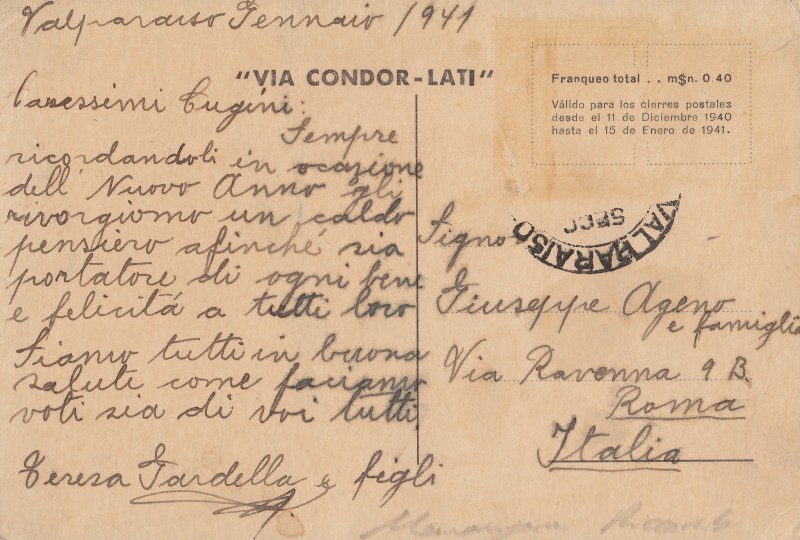 Valparaiso Gennaio / 1941
"VIA CONDOR-LATI"
Franqueo total . . m$n. 0.40
Válido para los cierres postales
desde el 11 de Diciembre 1940
hasta el 15 de Enero de 1941.
Caressimi Cugini:
Sempre
ricordandoli in ocasione
dell Nuovo Anno gli
rivorgiomo un caldo
pensiero afinché sia
portatore di ogni bene
e felicitá a tutti loro
Siamo tutti in buona
salute come faciamo
voti sia di voi tutti
Teresa Gardella e figli
VALPARAISO
SECC
Signor
Giuseppe Ageno
e famiglia
Via Ravenna 9 B.
Roma
Italia